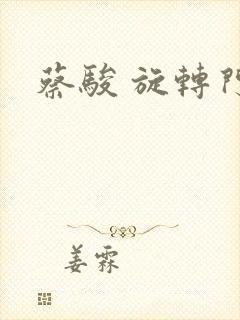 蔡駿 旋轉門
姜霖